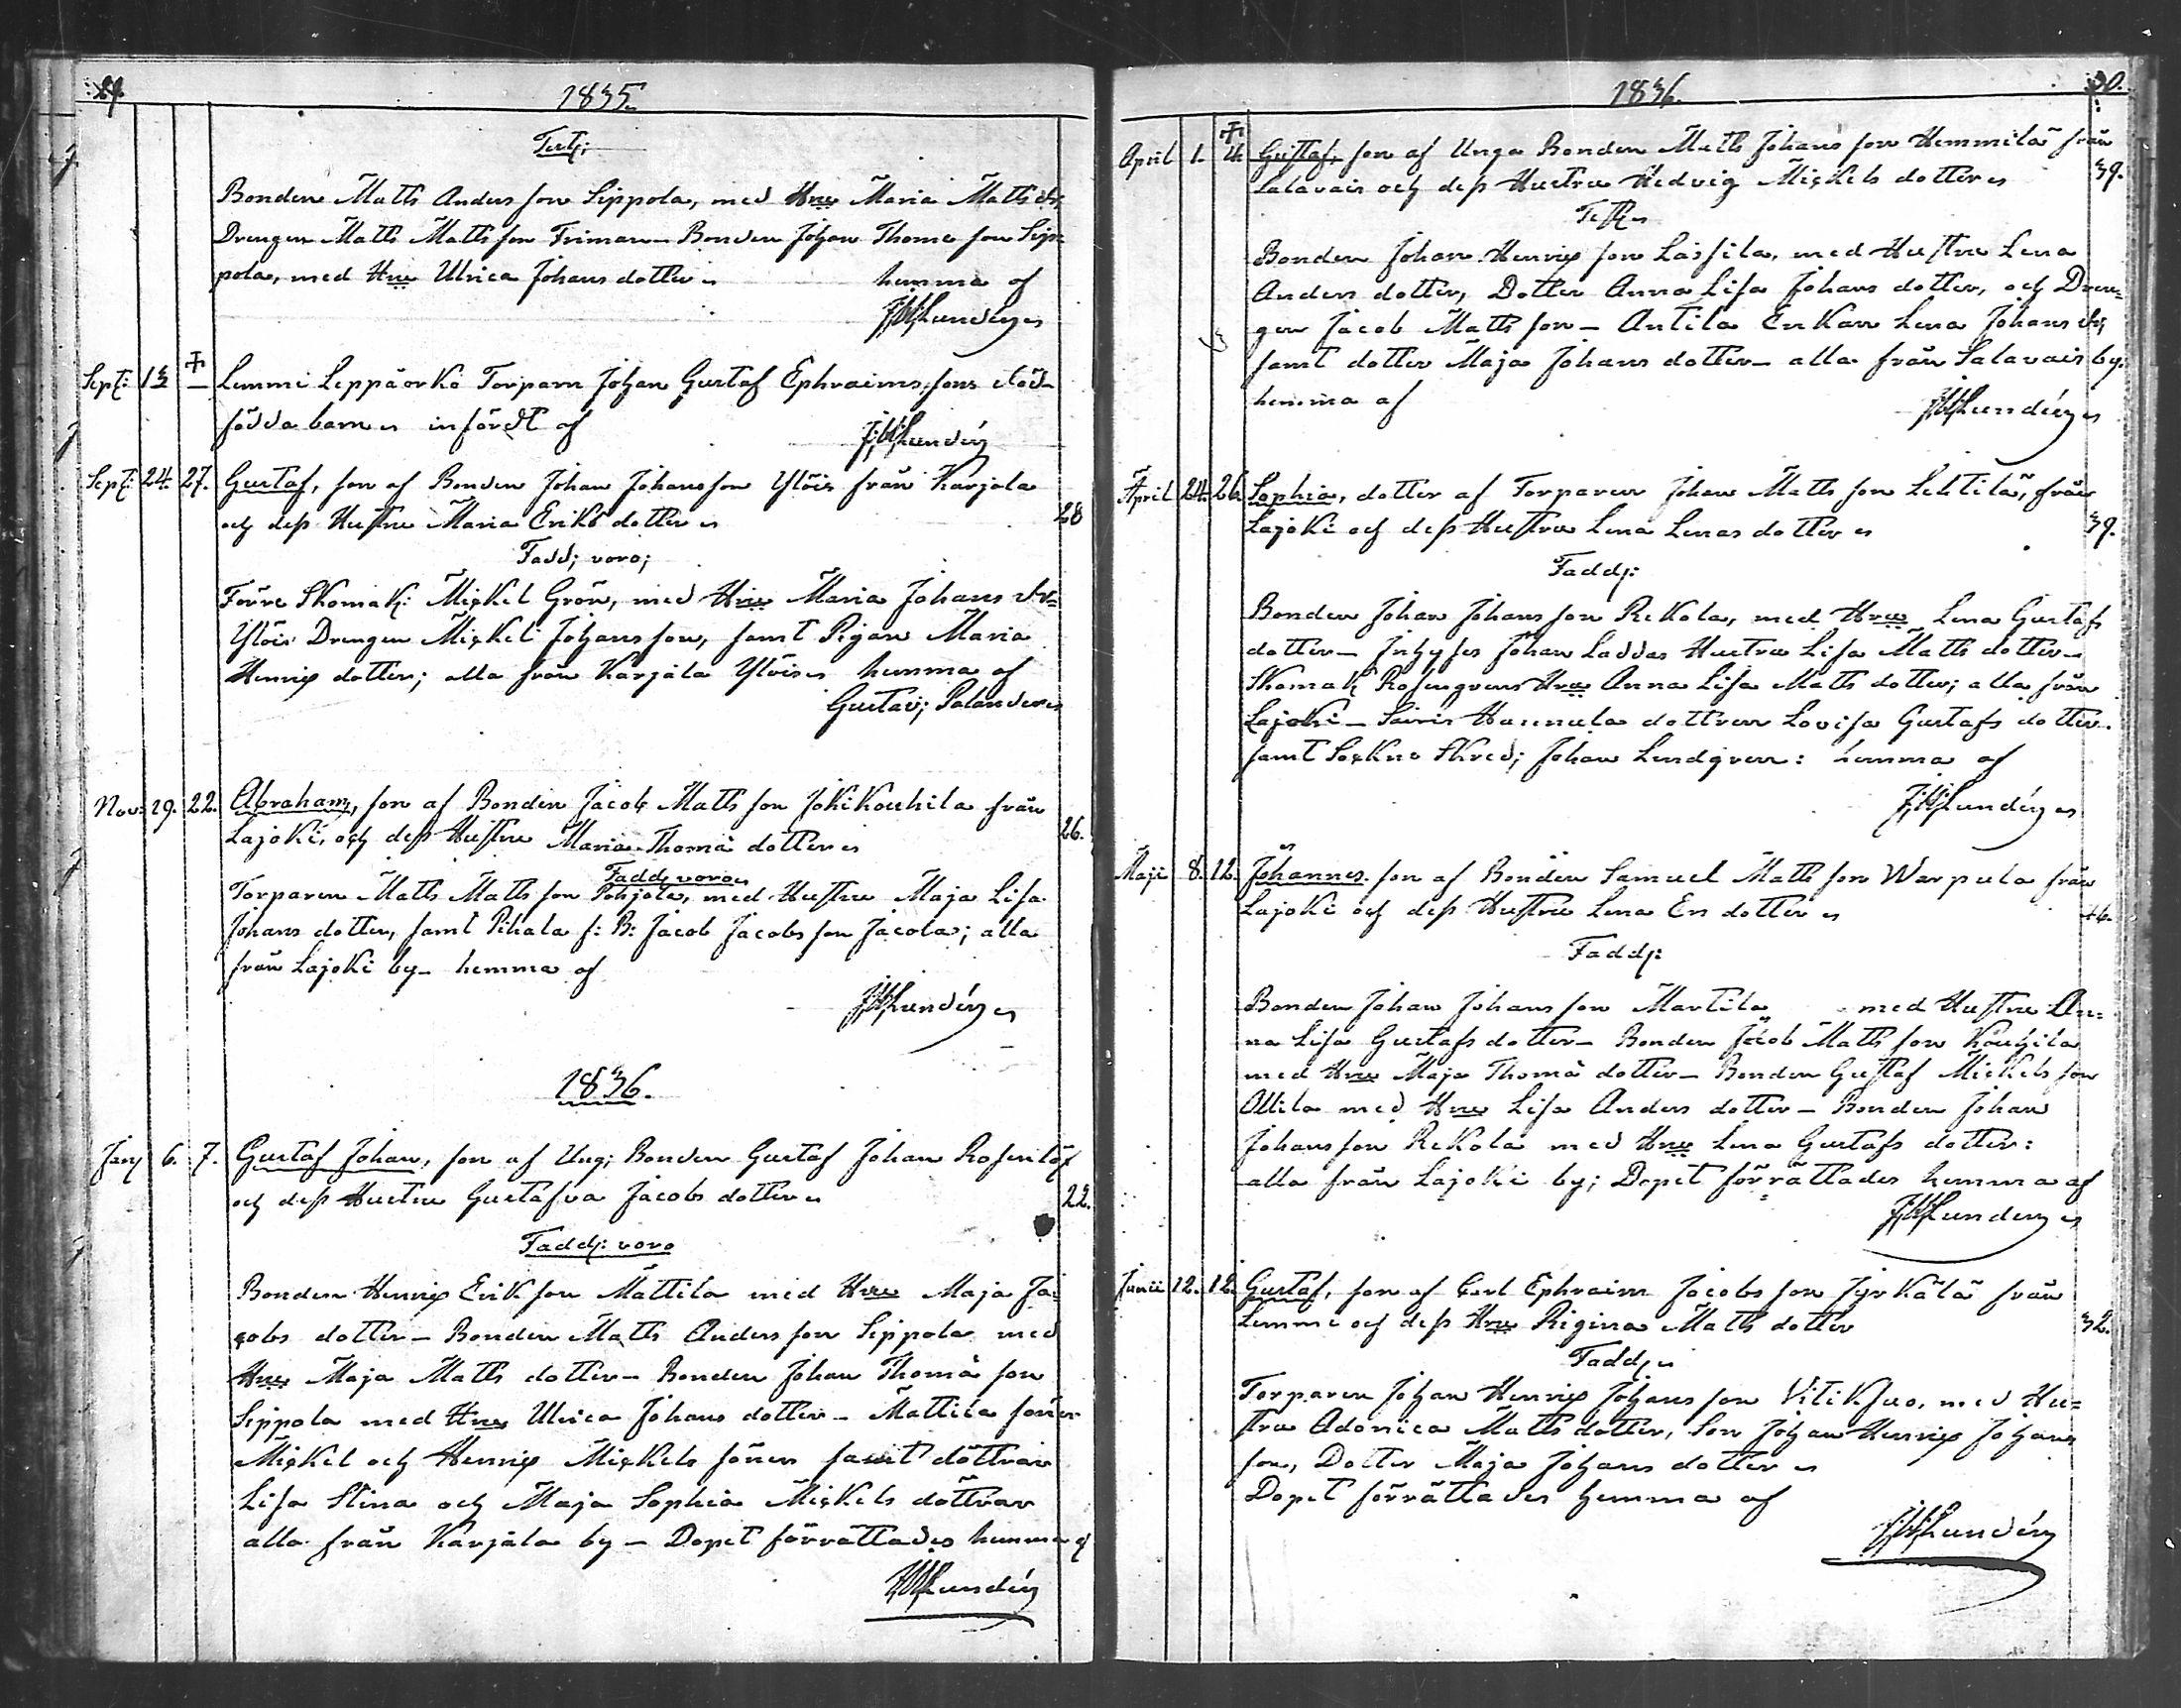 29.
1835.
Test:
Bonden Matts Anders son Sippola, med Hru Maria Matts dr,
Drengen Matts Matts son Friman – Bonden Johan Thome son Sip=
pola, med Hru Ulrica Johans dotter
hemma af
Lundén
Sept: 13 + – Lemmi Leppäorko Torparn Johan Gustaf Ephraims sons död
födda barn införd af
Lundén
Sept: 24. 27. Gustaf, son af Bonden Johan Johansson Ylöis från Karjala
och dess Hustru Maria Eriks dotter 28
Fadd; voro;
Förre Skomak: Mickel Grön, med Hru Maria Johans dr=
Ylöis Drengen Mickel Johans son, samt Pigan Maria
Henrics dotter; alla från Karjala Ylöis hemma af
Gustav; Palander
Nov: 19. 22. Abraham, son af Bonden Jacob Matts son Jokikouhila från
Lajoki, och dess Hustru Maria Thomä dotter 26.
Fadd voro
Torparen Matts Matts son Pohjola, med Hustru Maja Lisa
Johans dotter, samt Pihala f: B: Jacob Jacobs son Jacola; alla
från Lajoki by – hemma af
Lundén
1836.
Janj 6. 7. Gustaf Johan, son af Ung; Bonden Gustaf Johan Rosenlöf
och dess Hustru Gustafva Jacobs dotter 22.
Faddj: voro
Bonden Henric Erik son Mattila med Hru Maja Ja=
cobs dotter – Bonden Matts Anders son Sippola med
Hru Maja Matts dotter – Bonden Johan Thomä son
Sippola med Hru Ulrica Johans dotter – Mattila söner
Mickel och Henric Mickels söner samt döttrar
Lisa Stina och Maja Sophia Mickels döttrar
alla från Karjala by – Dopet förrättades hemma af
Lundén
30.
1836.
April 1. + 4. Gustaf, son af Unga Bonden Matts Johans son Hemmilä från
Salavais och dess Hustru Hedvig Mickels dotter 39.
Test
Bonden Johan Henric son Lassila, med Hustru Lena
Anders dotter, Dotter Anna Lisa Johans dotter, och Dren=
gen Jacob Matts son – Antila Enkan Lena Johans dr,
samt dotter Maja Johans dotter – alla från Salavais by.
hemma af
Lundén
April 24. 26. Sophia, dotter af Torparen Johan Matts son Lehtilä, från
Lajoki och dess Hustru Lena Lenas dotter 39.
Faddj:
Bonden Johan Johans son Rekola, med Hru Lena Gustafs
dotter – Inhyses Johan Laddas Hustru Lisa Matts dotter –
Skomak Rosengrens Hru Anna Lisa Matts dotter; alla från
Lajoki – Sairis Hannula dottren Lovisa Gustafs dotter.
samt Sockne Skred; Johan Lindgren: hemma af
Lundén
Maji 8. 12. Johannes. son af Bonden Samuel Matts son Warpula från
Lajoki och dess Hustru Lena Ers dotter
Faddj:
Bonden Johan Johans son Martila med Hustru An=
na Lisa Gustafs dotter – Bonden Jacob Matts son Kouhila
med Hru Maja Thomä dotter – Bonden Gustaf Mickels son
Ollila med Hru Lisa Anders dotter – Bonden Johan
Johans son Rekola med Hru Lena Gustafs dotter:
alla från Lajoki by; Dopet förrättades hemma af
Lundén
Junii 12. 12. Gustaf, son af Carl Ephraim Jacobs son Jyrkälä från
Lemmi och dess Hru Rigina Matts dotter 32.
Faddj
Torparen Johan Henric Johans son Vitiksuo, med Hu=
stru Adonica Matts dotter, Son Johan Henric Johans
son, Dotter Maja Johans dotter
Dopet förrättades hemma af
Lundén